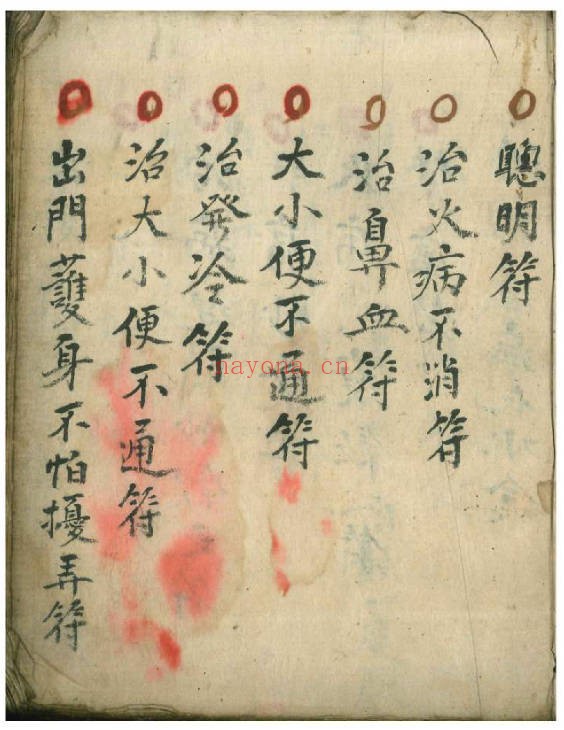 聰明符
治火病不消符
治鼻血符
大小便不通符
治發冷符
治大小便不通符
出門護身不怕擾弄符
nayona.cn